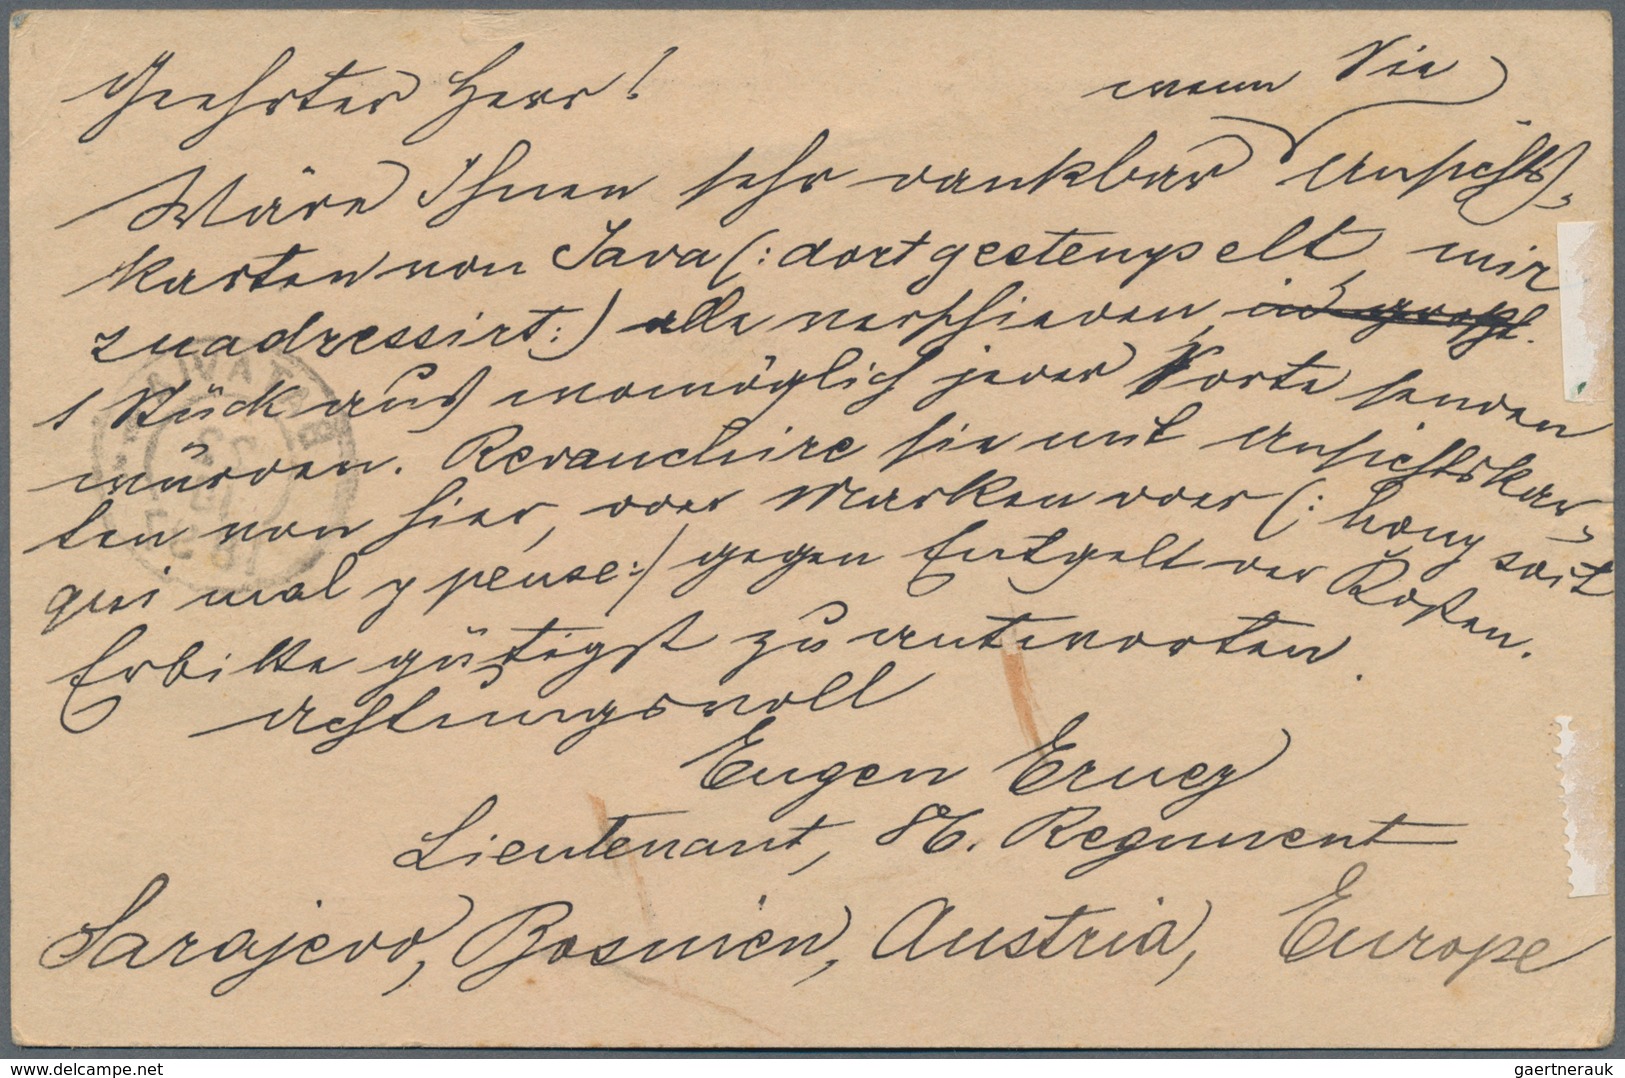 Geehrter Herr!
wenn Sie
Wäre Ihnen sehr dankbar Ansichts-
karten von Java (: dort gestempelt, mir
zuadressirt :) alle verschieden
1 Stück aus womöglich jeder Sorte senden
würden. Revanchire sie mit Ansichtskar-
ten von hier, oder Marken oder (: hony soit
qui mal y pense :) gegen Entgelt der Kosten.
Erbitte gütigst zu antworten.
Achtungsvoll
Eugen
Lieutenant, 86. Regiment
Sarajevo, Bosnien, Austria, Europe
delcampe.net
gaertnerauk